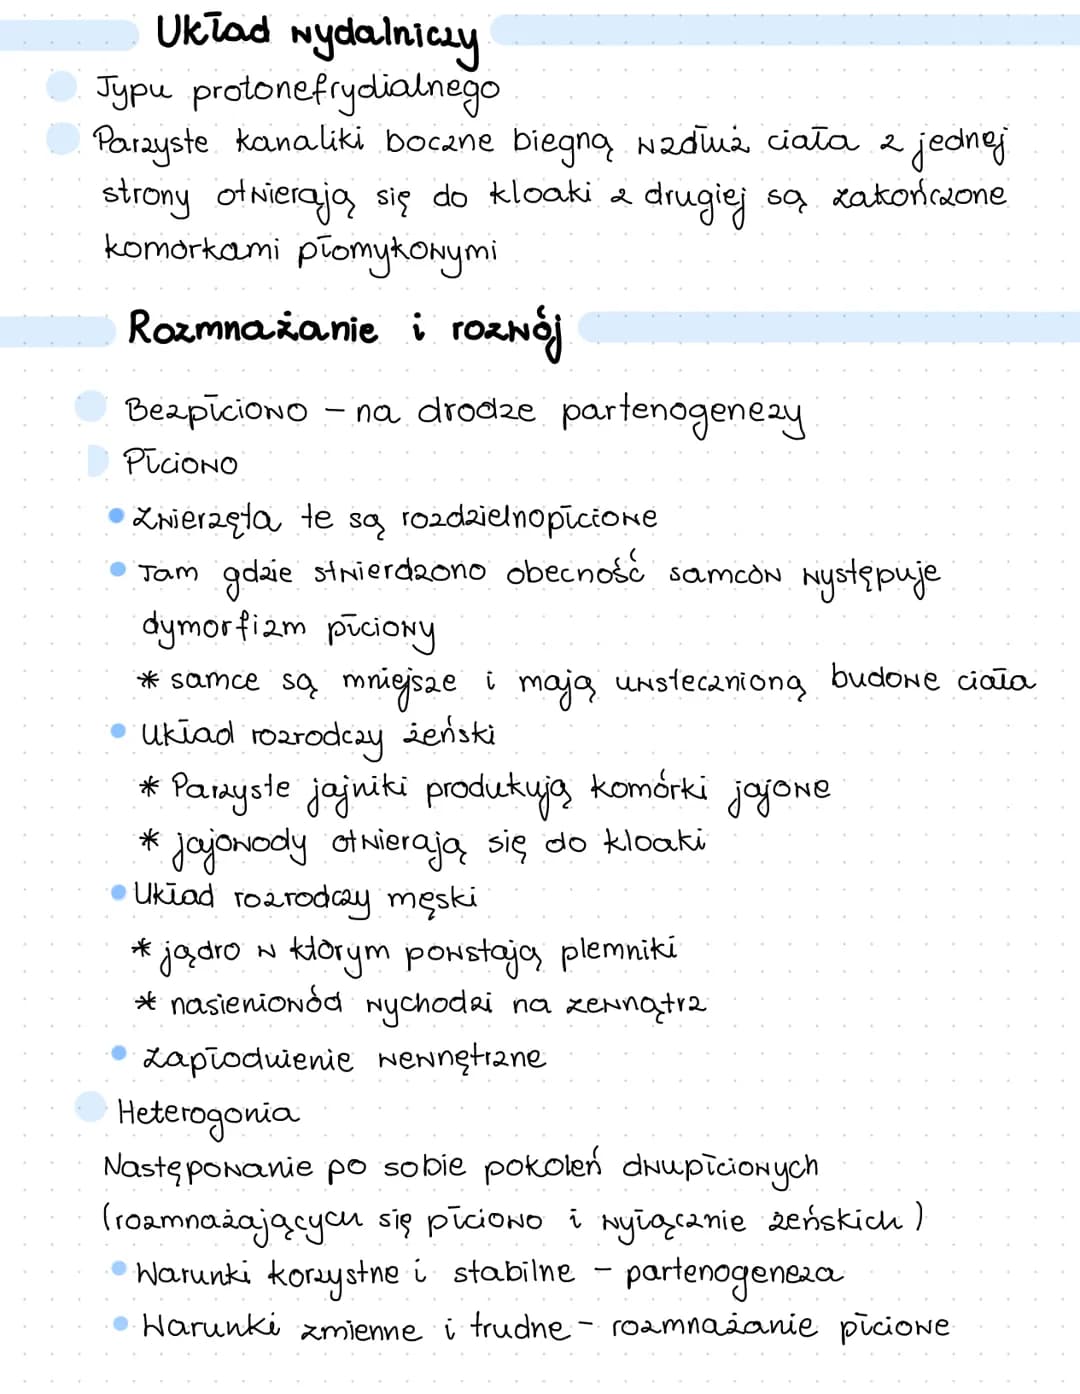 Układ wydalniczy
Typu protonefrydialnego
Parzyste kanaliki boczne biegną wzdłuż ciała z jednej
strony otwierają się do kloaki z drugiej są zakończone
komórkami płomykowymi
Rozmnażanie i rozwój
Bezpłciowo – na drodze partenogenezy
Płciowo
• Zwierzęta te są rozdzielnopłciowe
• Tam gdzie stwierdzono obecność samców występuje
dymorfizm płciowy
* samce są mniejsze i mają uwstecznioną budowe ciała
• Układ rozrodczy żeński
* Parzyste jajniki produkują komórki jajowe
* jajowody otwierają się do kloaki
• Układ rozrodczy męski
* jądro w którym powstają plemniki
* nasieniowód wychodzi na zewnątrz
• Zapłodnienie wewnętrzne
Heterogonia
Następowanie po sobie pokoleń dwupłciowych
(rozmnażających się płciowo i wyłącznie żeńskich)
• Warunki korzystne i stabilne – partenogeneza
• Warunki zmienne i trudne – rozmnażanie płciowe